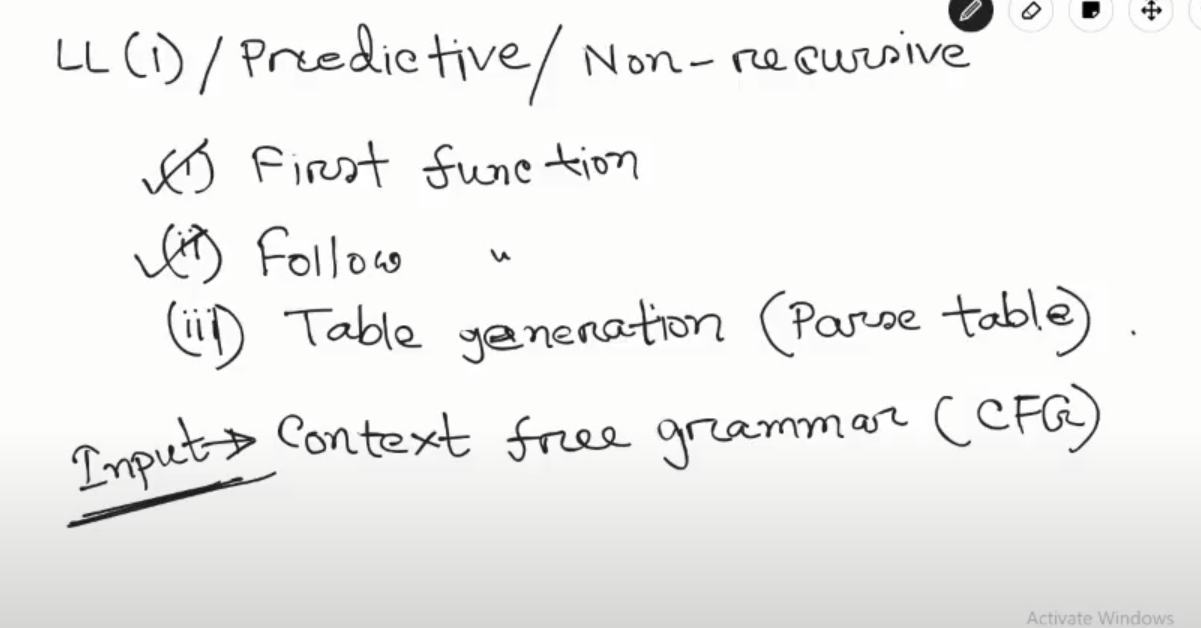 LL(1)/Predictive/Non-recursive
(i) First function
(ii) Follow "
(iii) Table generation (Parse table).
Input→ Context free grammar (CFG)
Activate Windows